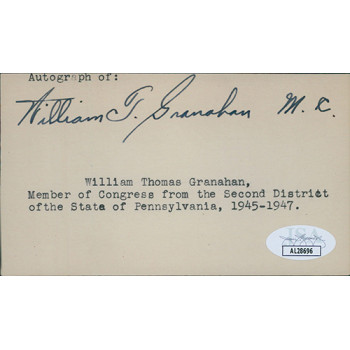 Autograph of:
William T. Granahan M.C.
William Thomas Granahan,
Member of Congress from the Second District
ofthe State of Pennsylvania, 1945-1947.
JSA
AL28696